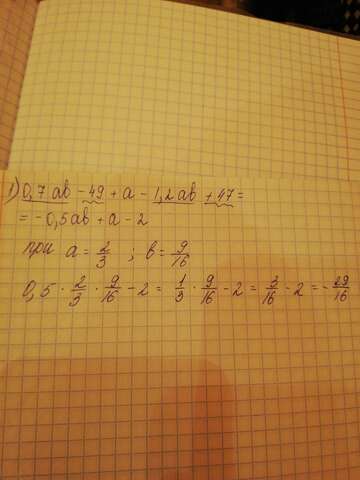 1) 0,7ав - 49 + а - 1,2ав + 47 =
= -0,5ав + а - 2
при а = 2/3 ; в = 9/16
0,5 · 2/3 · 9/16 - 2 = 1/3 · 9/16 - 2 = 3/16 - 2 = - 29/16